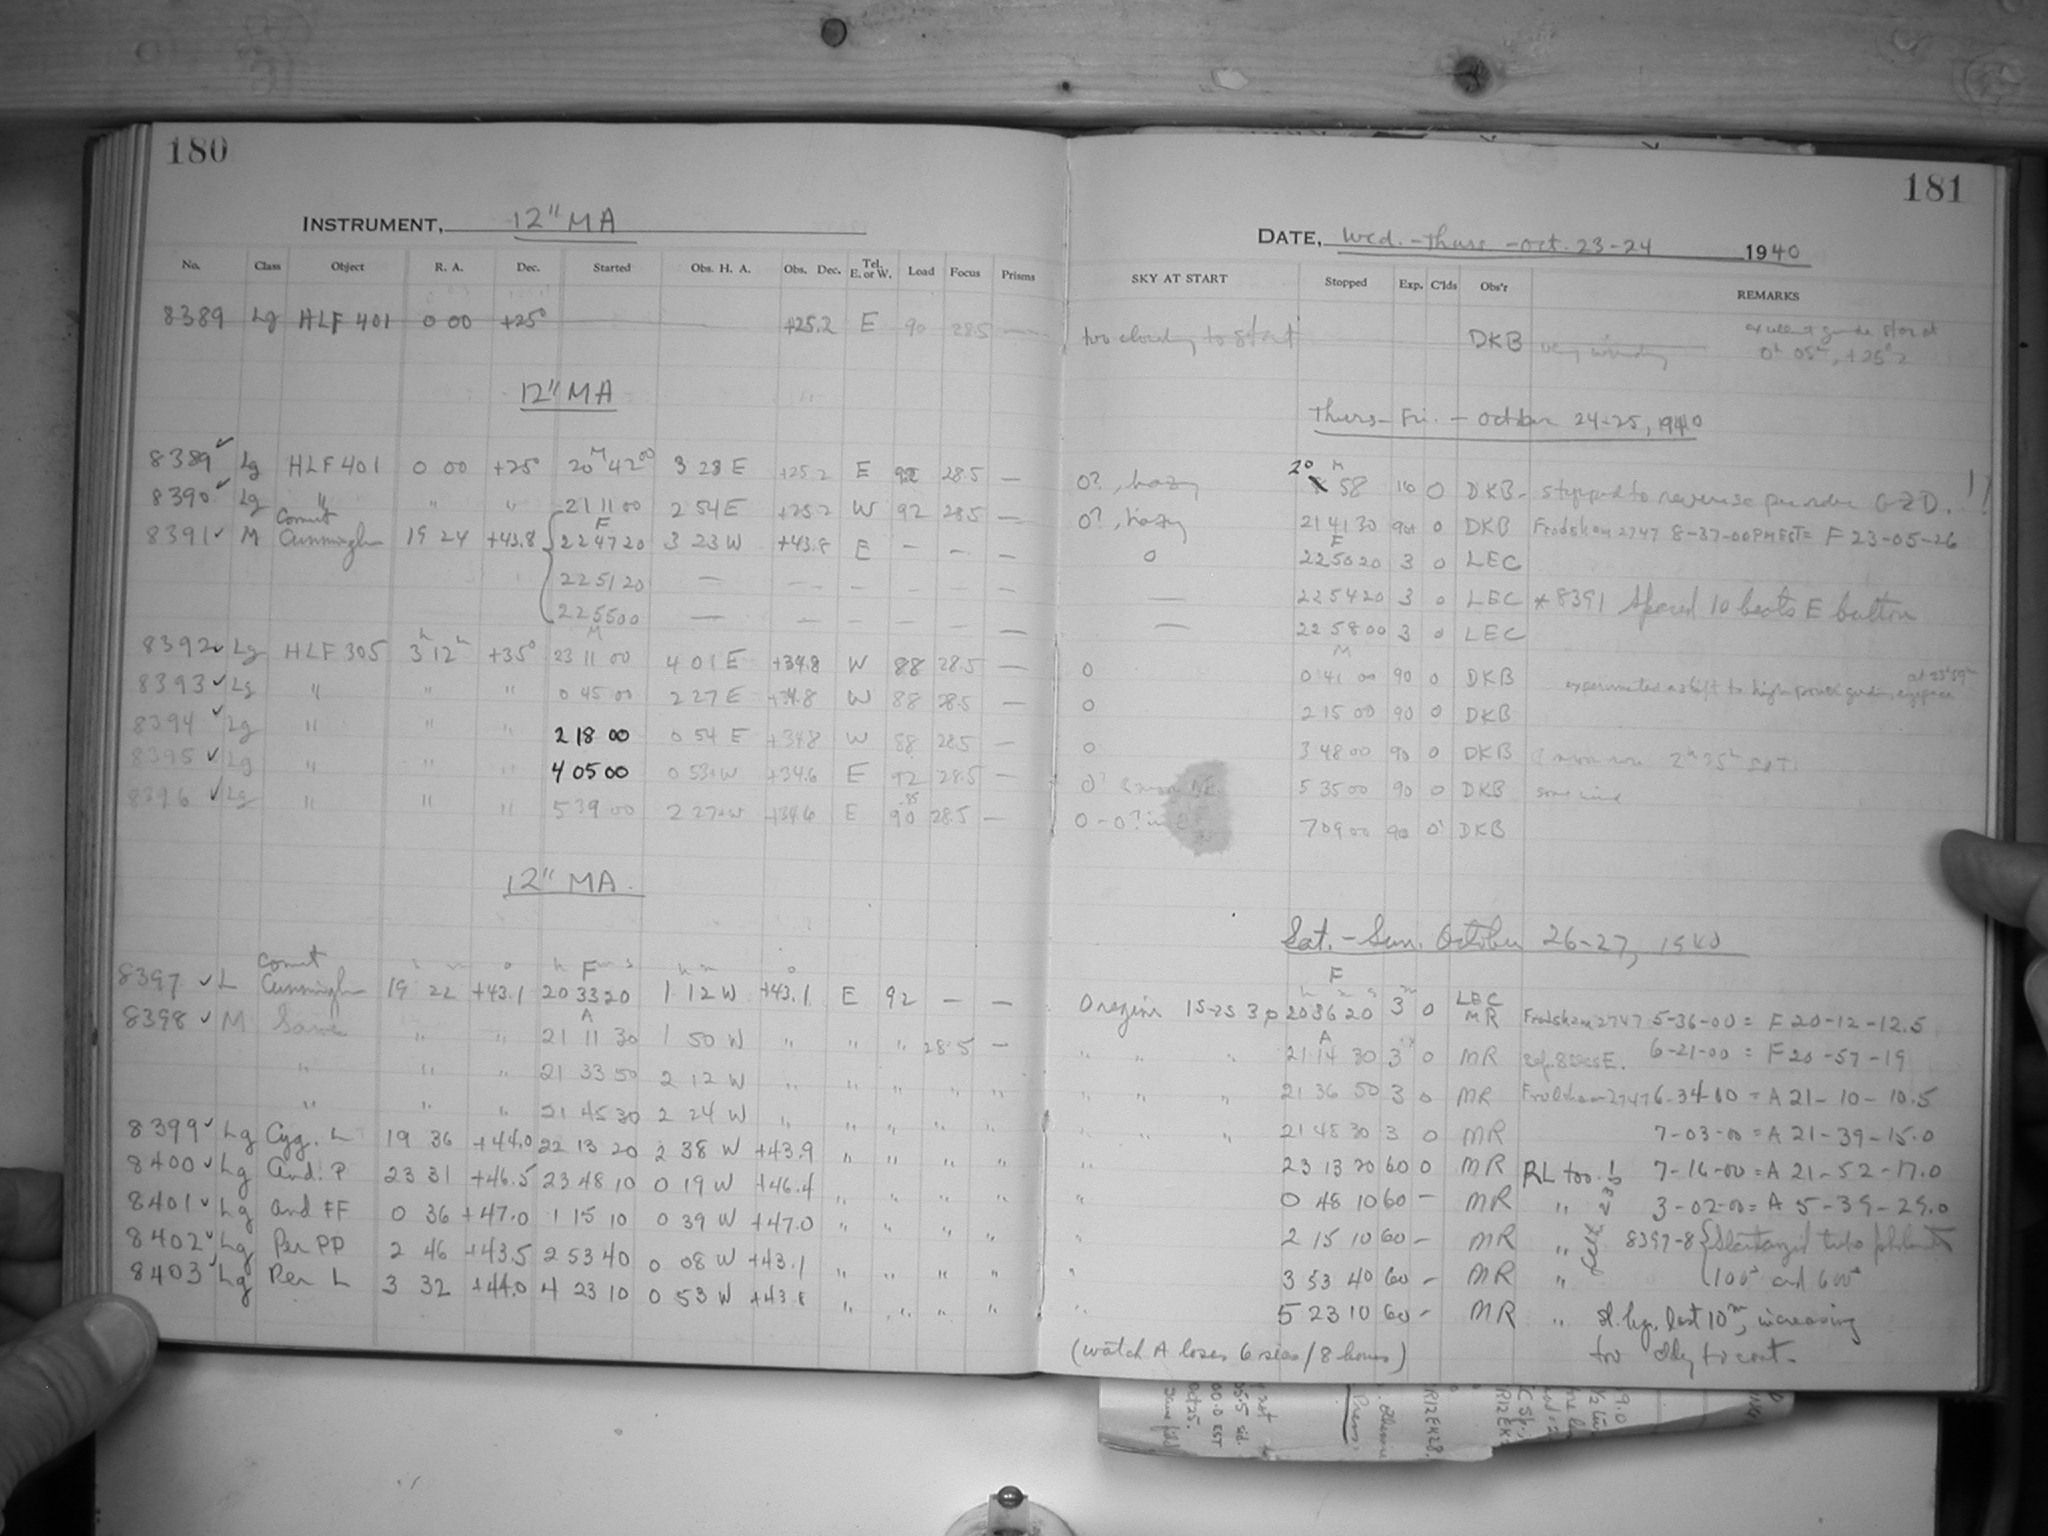 180
INSTRUMENT, 12" MA
No. Class Object R. A. Dec. Started Obs. H. A. Obs. Dec. Tel. E. or W. Load Focus Prisms
8389 Lg HLF 401 0 00 +25° +25.2 E 90 28.5 —
12" MA
8389 ✓ Lg HLF 401 0 00 +25° 20 M 42 00 3 23 E +25.2 E 92 28.5 —
8390 ✓ Lg " " " 21 11 00 2 54 E +25.2 W 92 28.5 —
8391 ✓ M Comet Cunningham 19 24 +43.8 F 22 47 20 3 23 W +43.8 E — — —
22 51 20 — — — — — —
22 55 00 — — — — — —
8392 ✓ Lg HLF 305 3h 12m +35° M 23 11 00 4 01 E +34.8 W 88 28.5 —
8393 ✓ Lg " " " 0 45 00 2 27 E +34.8 W 88 28.5 —
8394 ✓ Lg " " " 2 18 00 0 54 E +34.8 W 88 28.5 —
8395 ✓ Lg " " " 4 05 00 0 53 W +34.6 E 92 28.5 —
8396 ✓ Lg " " " 5 39 00 2 27 W +34.6 E .85 90 28.5 —
12" MA.
8397 ✓ L Comet Cunningham 19 22 +43.1 h F m s 20 33 20 1 12 W +43.1 E 92 — —
8398 ✓ M Same " " A 21 11 30 1 50 W " " " 28.5 —
" " " 21 33 50 2 12 W " " " " "
" " " 21 45 30 2 24 W " " " " "
8399 ✓ Lg Cyg. L 19 36 +44.0 22 13 20 2 38 W +43.9 " " " "
8400 ✓ Lg And. P 23 31 +46.5 23 48 10 0 19 W +46.4 " " " "
8401 ✓ Lg And FF 0 36 +47.0 1 15 10 0 39 W +47.0 " " " "
8402 ✓ Lg Per PP 2 46 +43.5 2 53 40 0 08 W +43.1 " " " "
8403 ✓ Lg Per L 3 32 +44.0 4 23 10 0 53 W +43.8 " " " "
181
DATE, Wed. - Thurs - Oct. 23-24 1940
SKY AT START Stopped Exp. C'lds Obs'r REMARKS
too cloudy to start DKB very windy excellent guide star at 0h 05m, +25°2
Thurs - Fri. - October 24-25, 1940
0?, hazy 20 M 58 16 0 DKB - stopped to reverse per order GZD. !!
0?, hazy 21 41 30 90 0 DKB Frodsham 2747 8-37-00 PM EST = F 23-05-26
0 F 22 50 20 3 0 LEC
— 22 54 20 3 0 LEC * 8391 Spaced 10 beats E button
— 22 58 00 3 0 LEC
0 M 0 41 00 90 0 DKB experimented a shift to high power guiding eyepiece at 23h 59m
0 2 15 00 90 0 DKB
0 3 48 00 90 0 DKB
0? 5 35 00 90 0 DKB some wind
0 - 0? in 7 09 00 90 0? DKB
Sat. - Sun. October 26-27, 1940
0 15-25 3 p F 20 36 20 3m 0 LEC MR Frodsham 2747 5-36-00 = F 20-12-12.5
" " " A 21 14 30 3 0 MR sep. 8 secs E. 6-21-00 = F 20-57-19
" " " 21 36 50 3 0 MR Frodsham 2747 6-34-00 = A 21-10-10.5
" " " 21 48 30 3 0 MR 7-03-00 = A 21-39-15.0
" 23 13 20 60 0 MR RL too ! 7-16-00 = A 21-52-17.0
" 0 48 10 60 — MR " 3-02-00 = A 5-39-29.0
" 2 15 10 60 — MR " 8397-8
" 3 53 40 60 — MR " 100s and 600s
" 5 23 10 60 — MR " sl. hzy. last 10m, increasing
(watch A loses 6 secs / 8 hours) too cldy to cont.